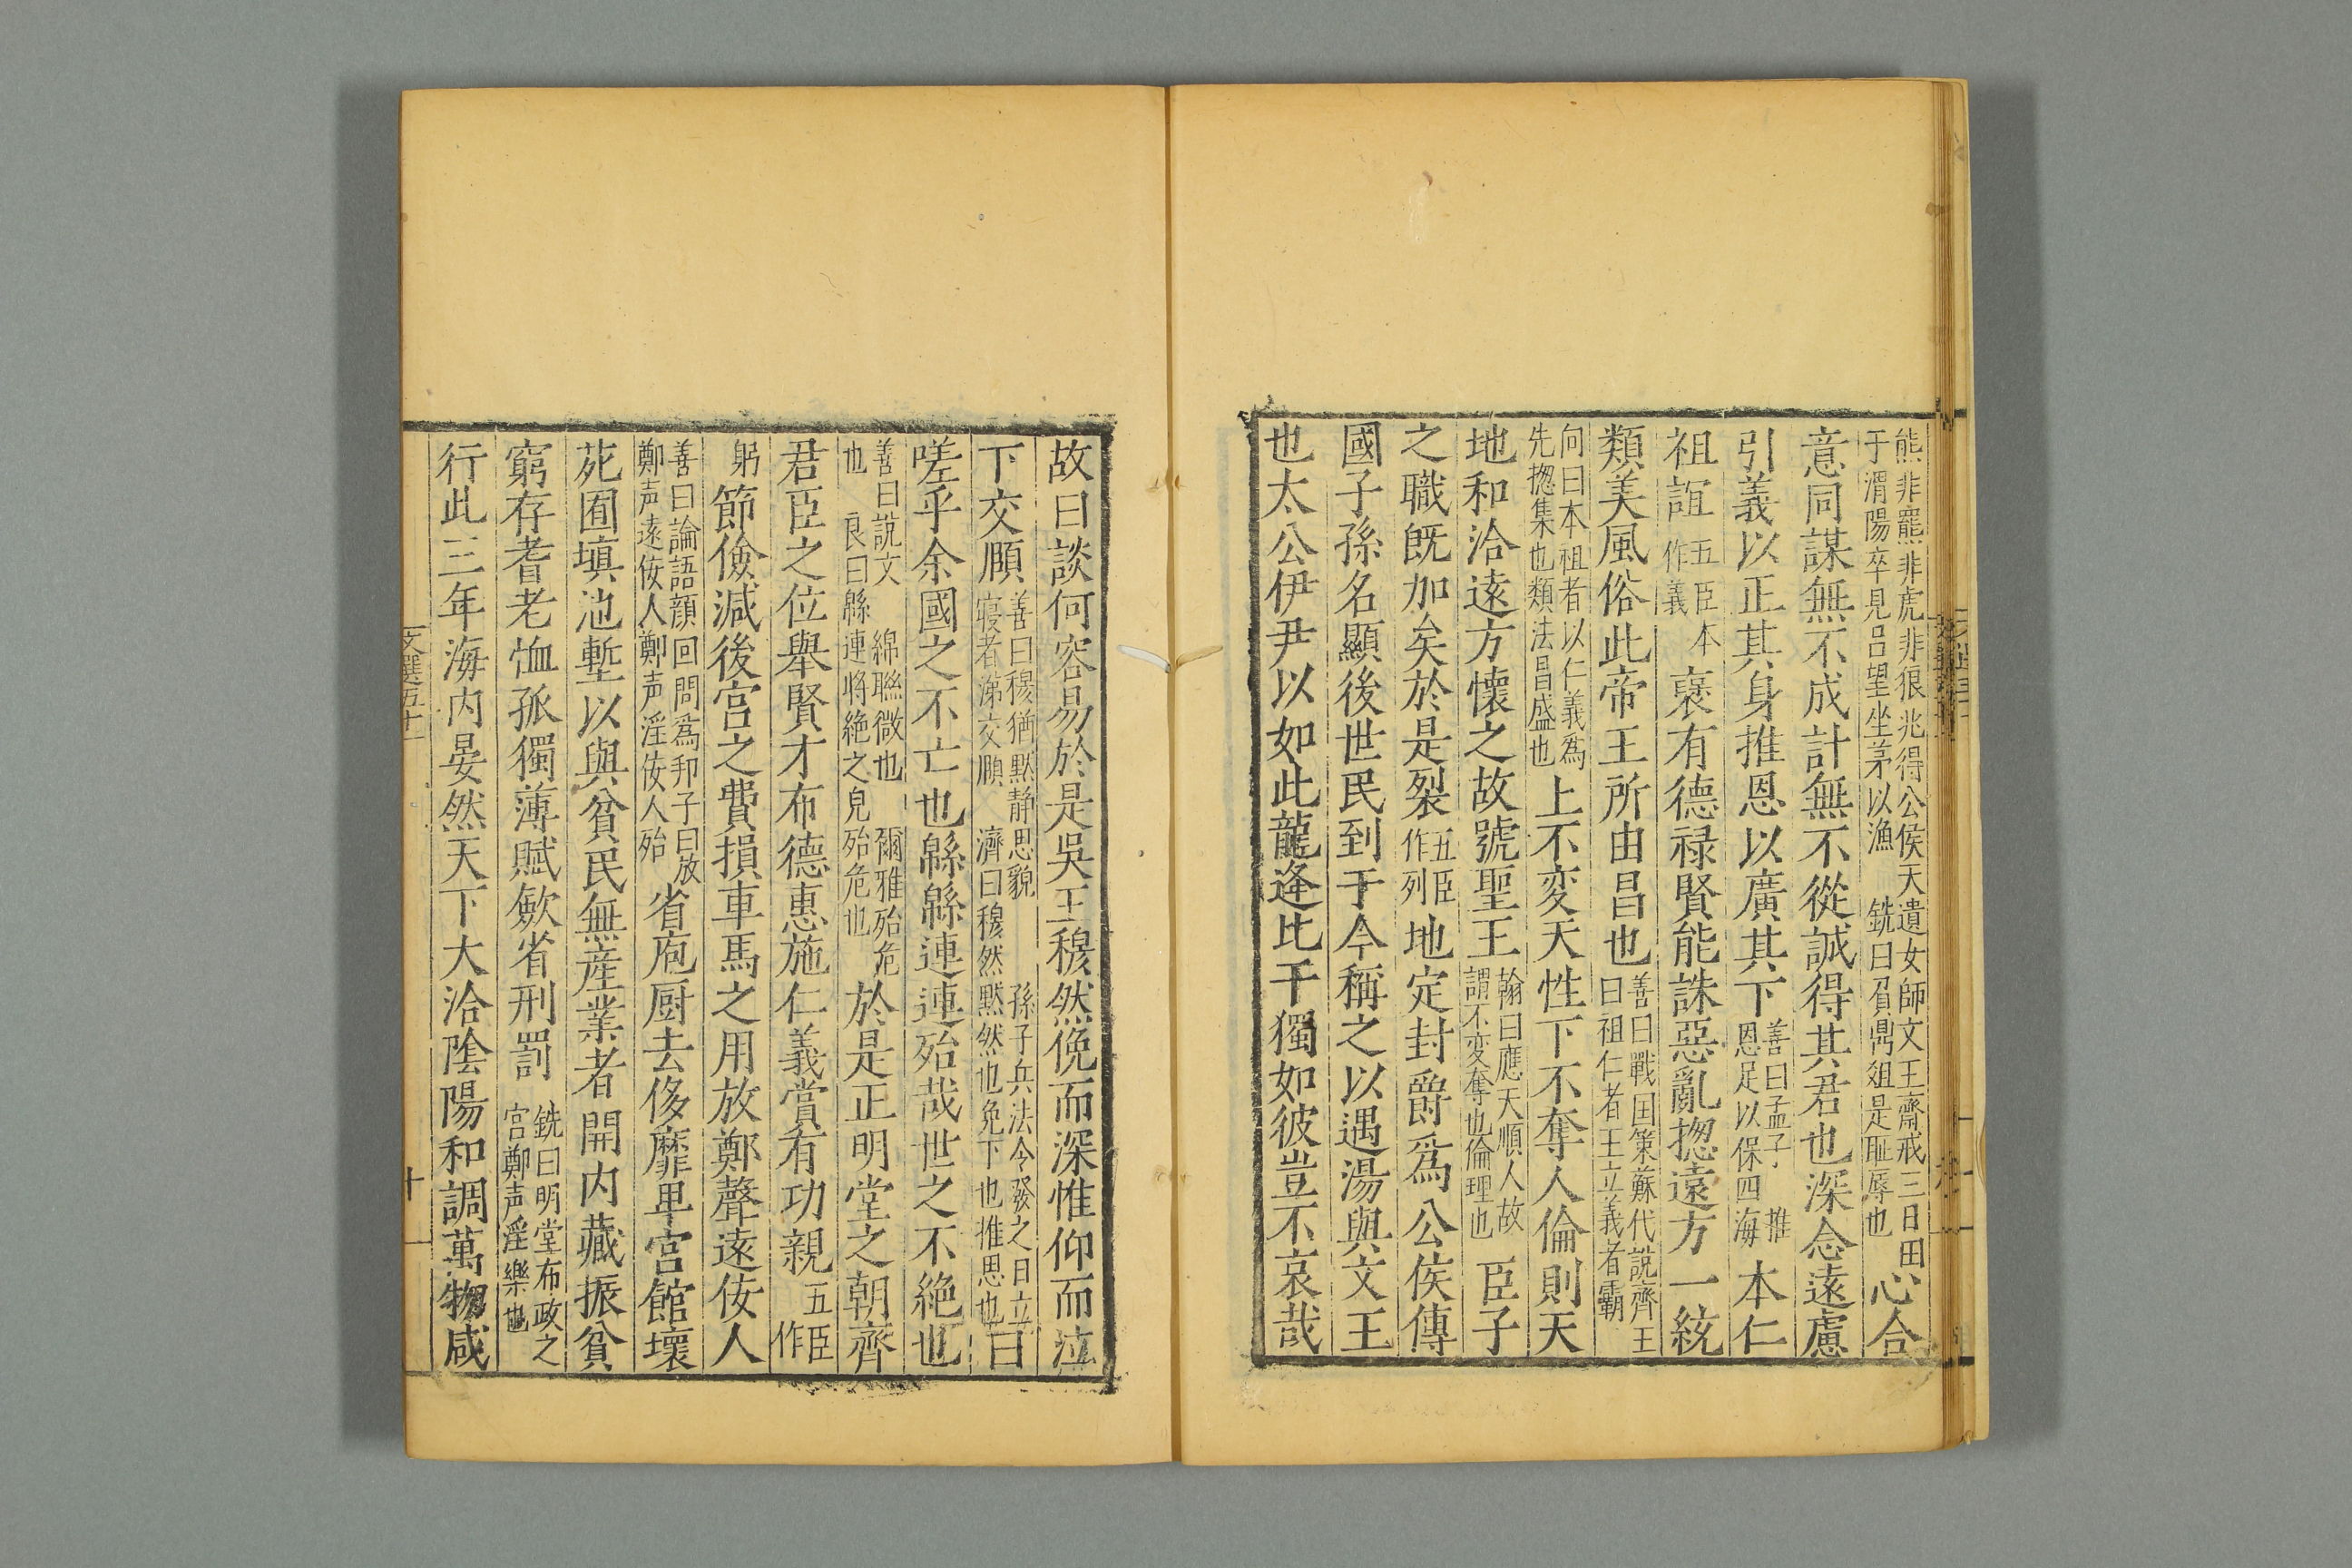 熊非羆非虎非狼兆得公侯天遺女師文王齋戒三日田
于渭陽卒見呂望坐茅以漁　銑曰負鼎俎是耻辱也　心合
意同謀無不成計無不從誠得其君也深念遠慮
引義以正其身推恩以廣其下善曰孟子推恩足以保四海本仁
祖誼五臣本作義襃有德禄賢能誅惡亂揔遠方一統
類美風俗此帝王所由昌也善曰戰国策蘇代說齊王曰祖仁者王立義者霸
向曰本祖者以仁義爲先揔集也類法昌盛也上不変天性下不奪人倫則天
地和洽遠方懷之故號聖王翰曰應天順人故謂不変奪也倫理也臣子
之職旣加矣於是裂五臣作列地定封爵爲公侯傳
國子孫名顯後世民到于今稱之以遇湯與文王
也太公伊尹以如此龍逄比干獨如彼豈不哀哉
故曰談何容易於是吳王穆然俛而深惟仰而泣
下交頤善曰穆猶黙静思貌孫子兵法令發之日立寢者涕交頤濟曰穆然黙然也免下也推思也曰
嗟乎余國之不亡也緜緜連連殆哉世之不絶也
善曰説文綿聯微也爾雅殆危也良曰緜連将絶之皃殆危也於是正明堂之朝齊
君臣之位舉賢才布德惠施仁義賞有功親五臣作
躬節儉減後宮之費損車馬之用放鄭聲遠佞人
善曰論語顔回問爲邦子曰放鄭声遠佞人鄭声淫佞人殆省庖厨去侈靡卑宮館壞
苑囿塡池塹以與貧民無産業者開内藏振貧
窮存耆老恤孤獨薄賦斂省刑罰銑曰明堂布政之宮鄭声淫樂也
行此三年海内晏然天下大洽陰陽和調萬物咸
文選五十一
十一